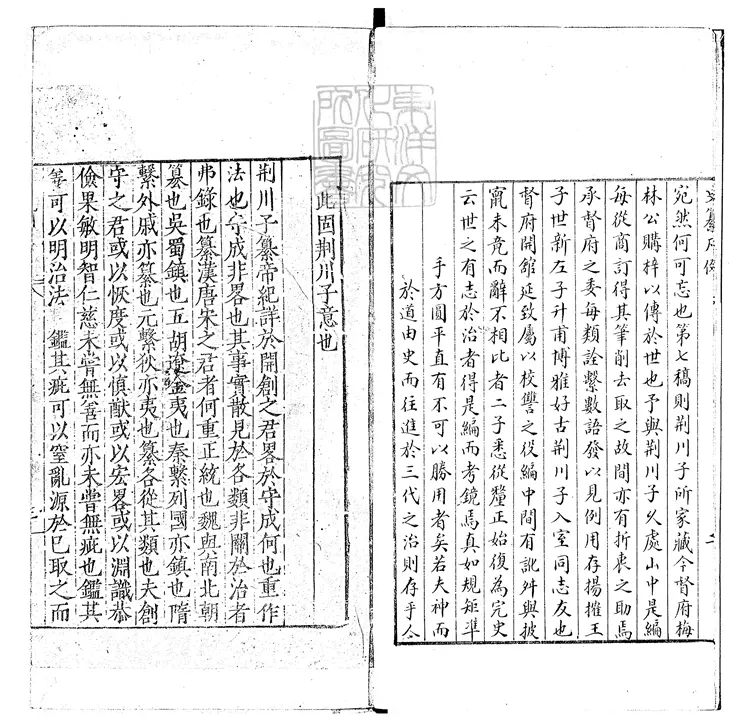 史纂序例
宛然何可忘也第七稿則荆川子所家藏今督府梅
林公購梓以傳於世也予與荆川子久處山中是編
每從商訂得其筆削去取之故間亦有折衷之助焉
承督府之委每類詮繫數語發以見例用存揚搉王
子世新左子升甫博雅好古荆川子入室同志友也
督府開館延致屬以校讐之役編中間有訛舛與披
竄未竟而辭不相比者二子悉從釐正始復為完史
云世之有志於治者得是編而考鏡焉真如規矩準
手方圓平直有不可以勝用者矣若夫神而
於道由史而往進於三代之治則存乎人
此固荆川子意也
荆川子纂帝紀詳於開創之君畧於守成何也重作
法也守成非畧也其事實散見於各類非關於治者
弗錄也纂漢唐宋之君者何重正統也魏與南北朝
篡也吳蜀鎮也五胡遼金夷也秦繫列國亦鎮也隋
繫外戚亦纂也元繫秋亦夷也纂各從其類也夫創
守之君或以恢度或以慎猷或以宏畧或以淵識恭
儉果敏明智仁慈未嘗無善而亦未嘗無疵也鑑其
善可以明治法鑑其疵可以窒亂源於已取之而
東洋文化研究所圖書